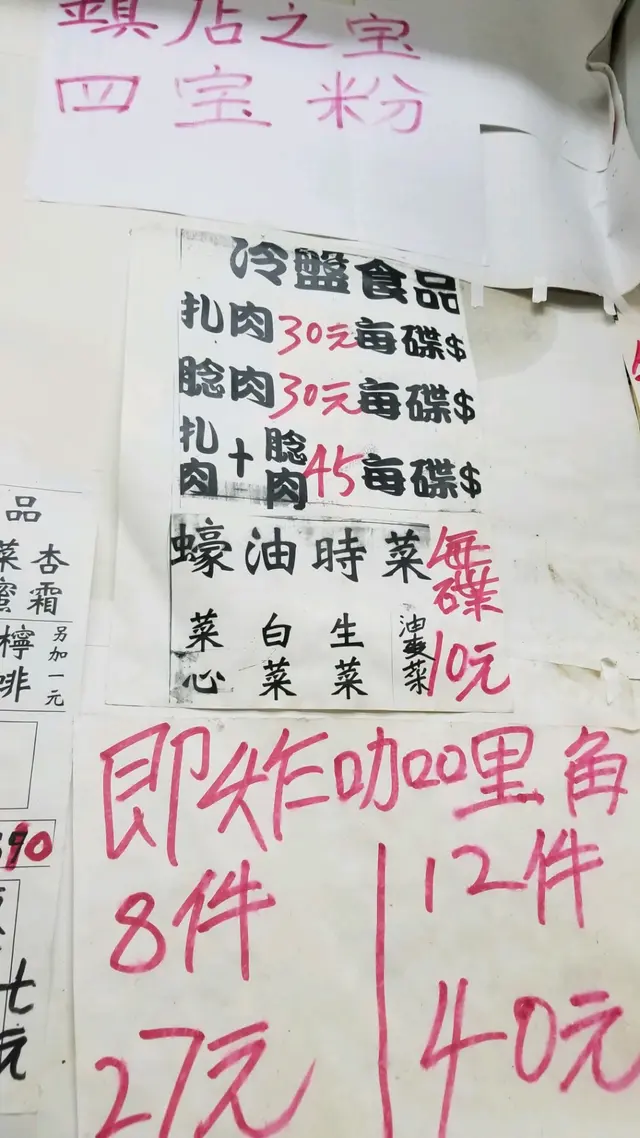 鎮店之宝
四宝粉
冷盤食品
扎肉30元每碟$
脸肉30元每碟$
扎肉+脸肉45每碟$
蠔油時菜 每碟
菜心 白菜 生菜 油麥菜 10元
品
菜 杏霜
蜜
檸 另加一元
啡
90
七元
即炸咖哩角
8件 12件
27元 40元